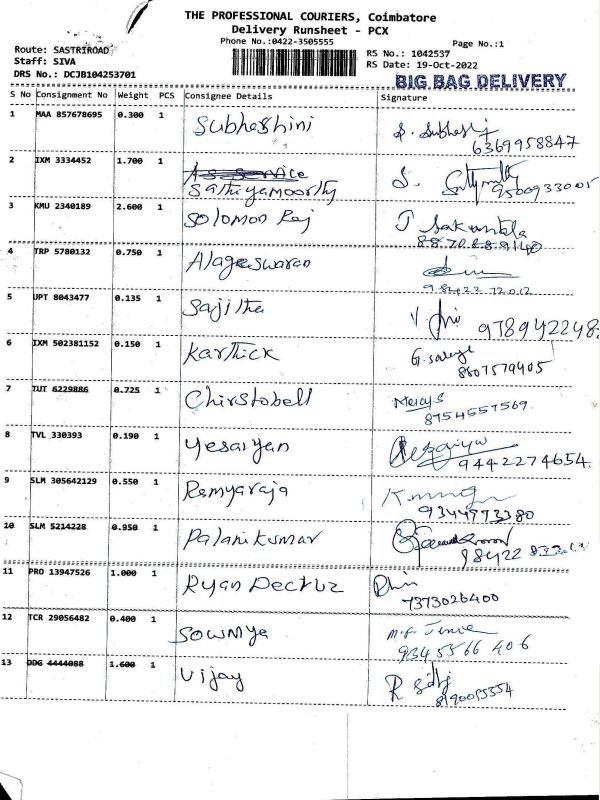 THE PROFESSIONAL COURIERS, Coimbatore
Delivery Runsheet - PCX
Phone No.:0422-3505555
Page No.:1
Route: SASTRIROAD
Staff: SIVA
DRS No.: DCJB104253701
RS No.: 1042537
RS Date: 19-Oct-2022
BIG BAG DELIVERY
S No Consignment No Weight PCS Consignee Details Signature
1 MAA 857678695 0.300 1 Subhashini S. Subhasj
6369958847
2 IXM 3334452 1.700 1 A S Service
Sathiyamoorthy S. 9500933005
3 KMU 2340189 2.600 1 Solomon Raj J Sakunthla
4 TRP 5780132 0.750 1 Alageswaran
5 UPT 8043477 0.135 1 Sajitha 978942248
6 IXM 502381152 0.150 1 Karthick G.
8807579405
7 TUT 6229886 0.725 1 Chirstobell Mercy S
8754557569
8 TVL 330393 0.190 1 Yesaiyan
9442274654
9 SLM 305642129 0.550 1 Remyaraja
9344773380
10 SLM 5214228 0.950 1 Palanikumar
11 PRO 13947526 1.000 1 Ryan Decruz
7373026400
12 TCR 29056482 0.400 1 Sowmya
9345566406
13 DDG 4444088 1.600 1 Vijay R